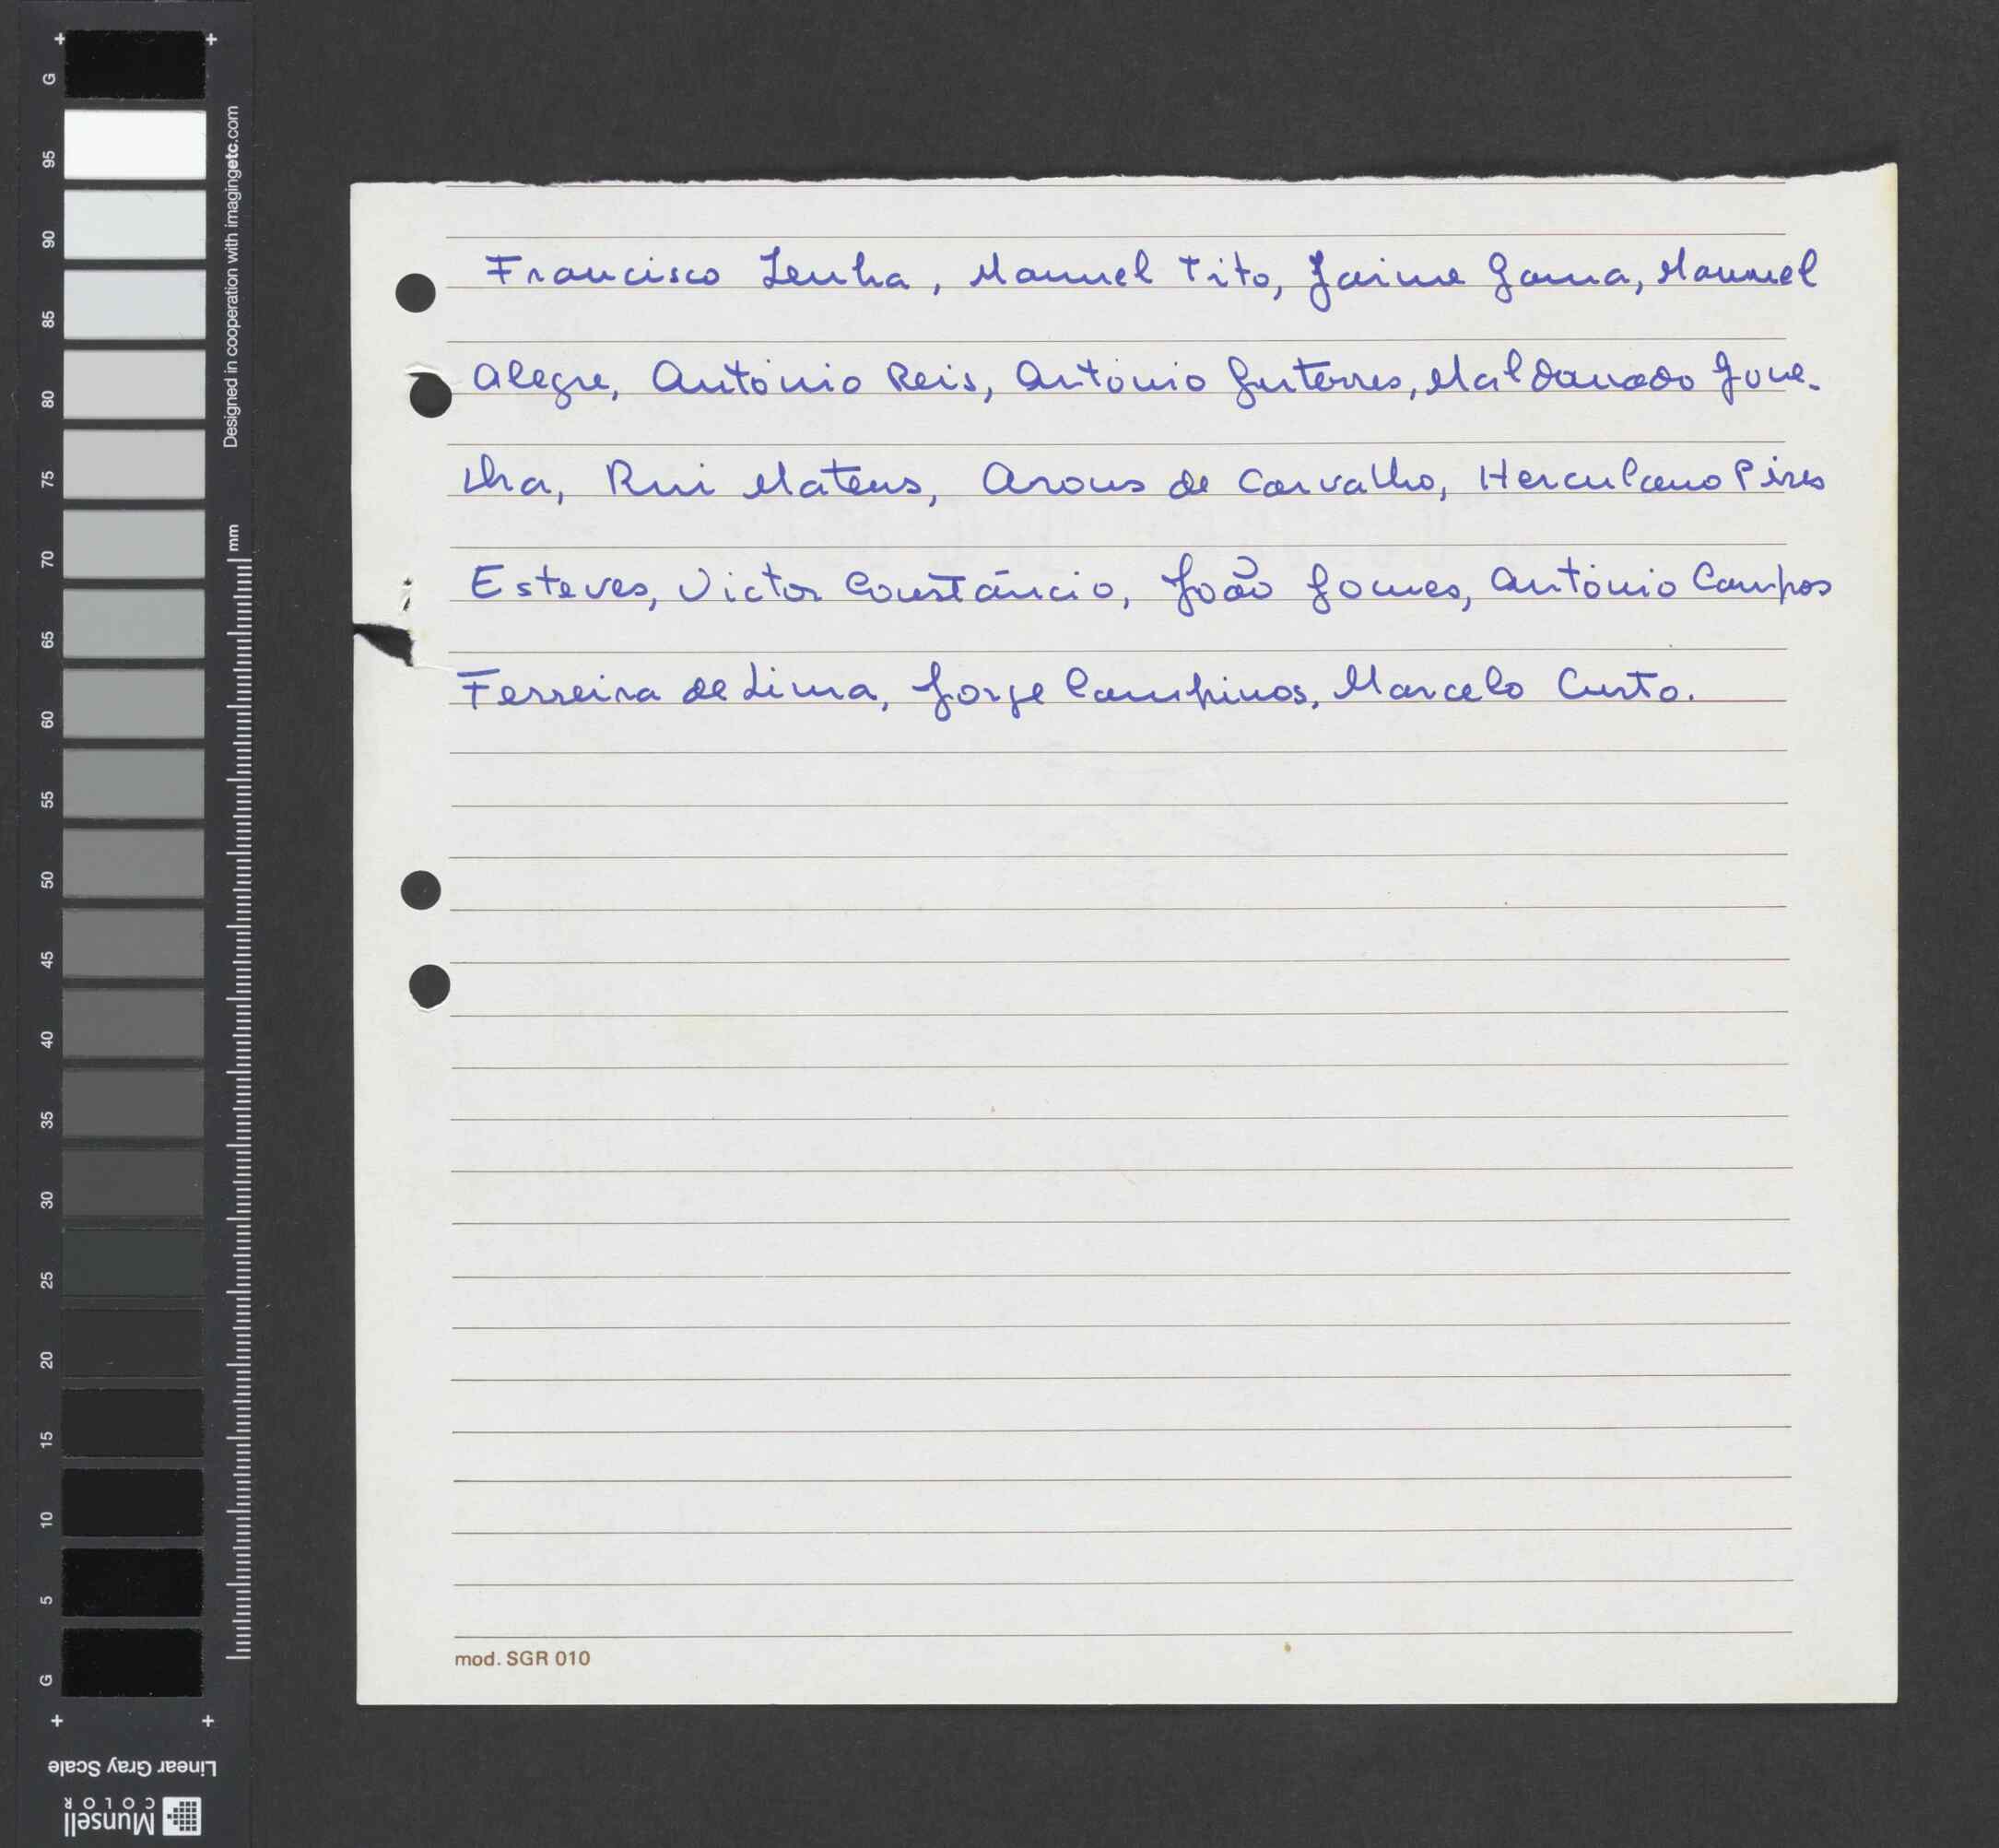 Francisco Zenha, Manuel Tito, Jaime Gama, Manuel
Alegre, António Reis, António Guterres, Maldonado Gone-
lha, Rui Mateus, Arons de Carvalho, Herculano Pires
Esteves, Victor Constâncio, João Gomes, António Campos
Ferreira de Lima, Jorge Campinos, Marcelo Curto.
mod. SGR 010
G
95
90
85
80
75
70
65
60
55
50
45
40
35
30
25
20
15
10
5
G
Designed in cooperation with imagingetc.com
mm
Linear Gray Scale
Munsell
COLOR